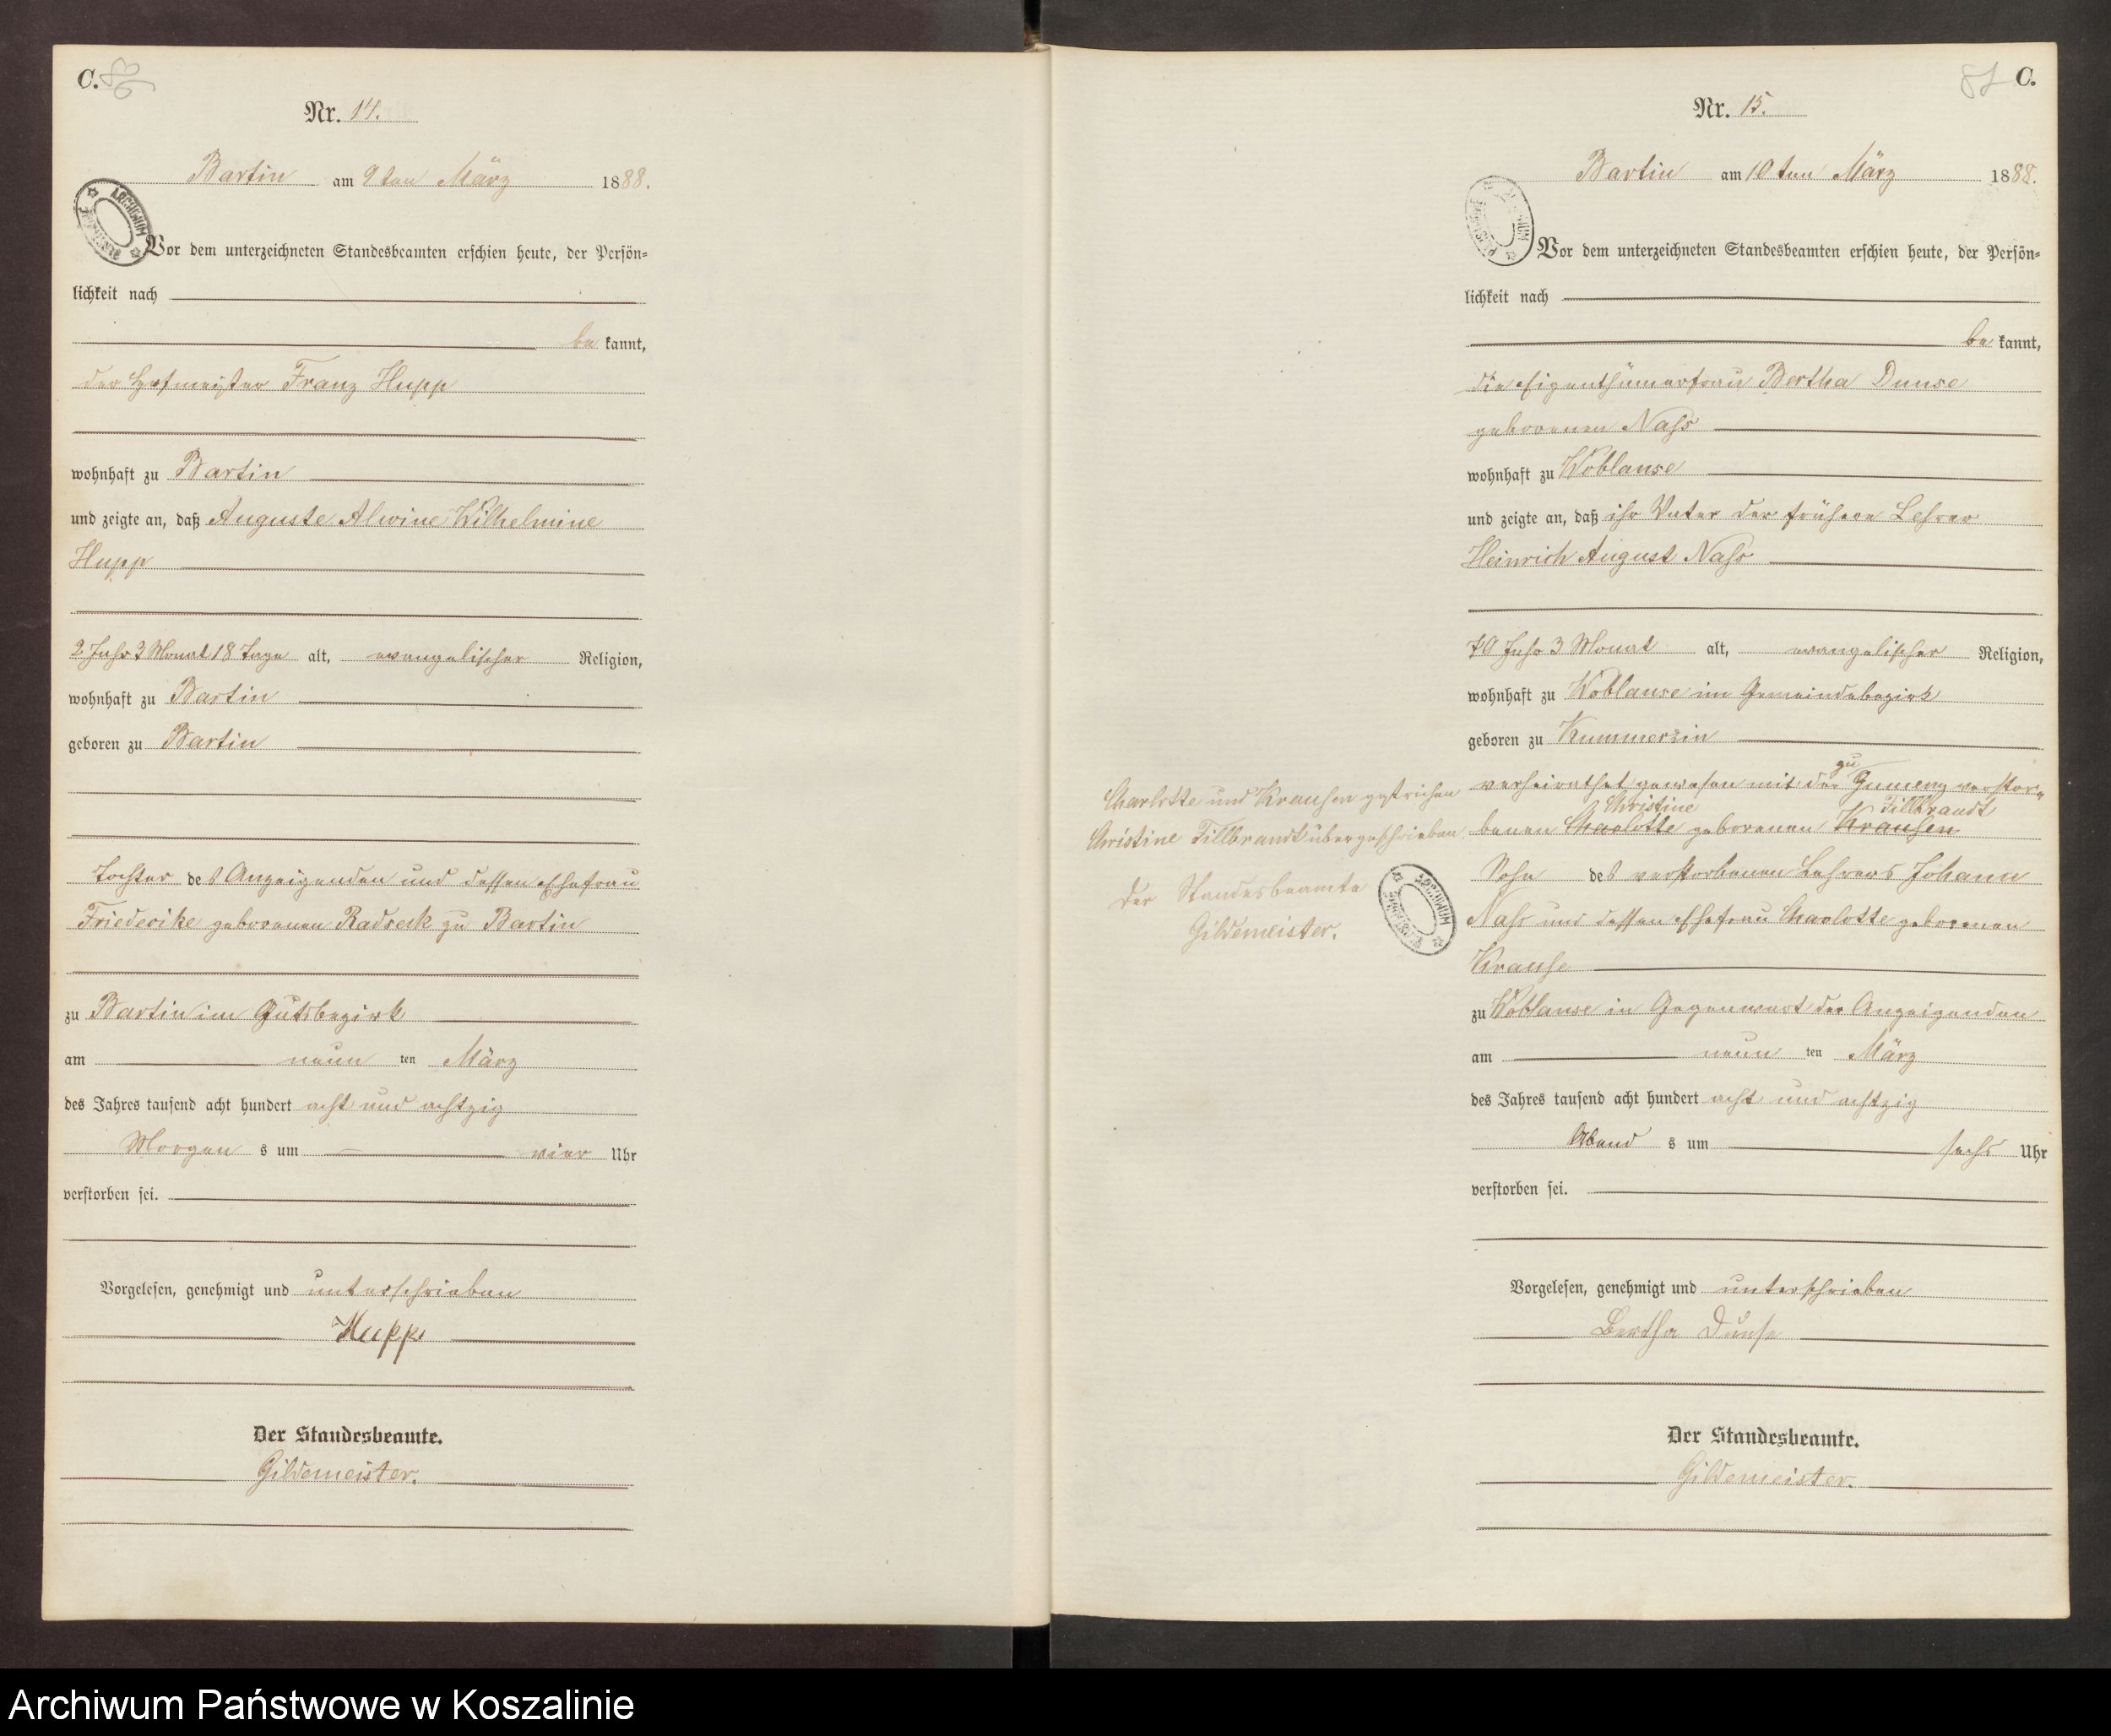 C.
Nr. 14.
Bartin am 9ten März 1888.
Vor dem unterzeichneten Standesbeamten erschien heute, der Persön-
lichkeit nach
be kannt,
der Hofmeister Franz Hupp
wohnhaft zu Bartin
und zeigte an, daß Auguste Alwine Wilhelmine
Hupp
2 Jahr 3 Monat 18 Tage alt, evangelischer Religion,
wohnhaft zu Bartin
geboren zu Bartin
Tochter des Anzeigenden und dessen Ehefrau
Friederike geborenen Radseck zu Bartin
zu Bartin im Gutsbezirk
am neun ten März
des Jahres tausend acht hundert acht und achtzig
Morgen s um vier Uhr
verstorben sei.
Vorgelesen, genehmigt und unterschrieben
Hupp
Der Standesbeamte.
Gildemeister.
C.
Nr. 15.
Bartin am 10ten März 1888.
ARCHIWUM
Vor dem unterzeichneten Standesbeamten erschien heute, der Persön-
lichkeit nach
be kannt,
die Eigenthümerfrau Bertha Dunse
geborenen Nass
wohnhaft zu Woblanse
und zeigte an, daß ihr Vater der frühere Lehrer
Heinrich August Nass
70 Jahr 3 Monat alt, evangelischer Religion,
wohnhaft zu Woblanse im Gemeindebezirk
geboren zu Kummerzin
verheirathet gewesen mit der zu Gumenz verstor-
Christine Tillbrandt
benen Charlotte geborenen Krausen
Charlotte und Krausen gestrichen
Christine Tillbrandt übergeschrieben.
Der Standesbeamte
Gildemeister.
ARCHIWUM
Sohn des verstorbenen Lehrers Johann
Nass und dessen Ehefrau Charlotte geborenen
Krause
zu Woblanse in Gegenwart der Anzeigenden
am neun ten März
des Jahres tausend acht hundert acht und achtzig
Abend s um sechs Uhr
verstorben sei.
Vorgelesen, genehmigt und unterschrieben
Bertha Dunse
Der Standesbeamte.
Gildemeister.
Archiwum Państwowe w Koszalinie